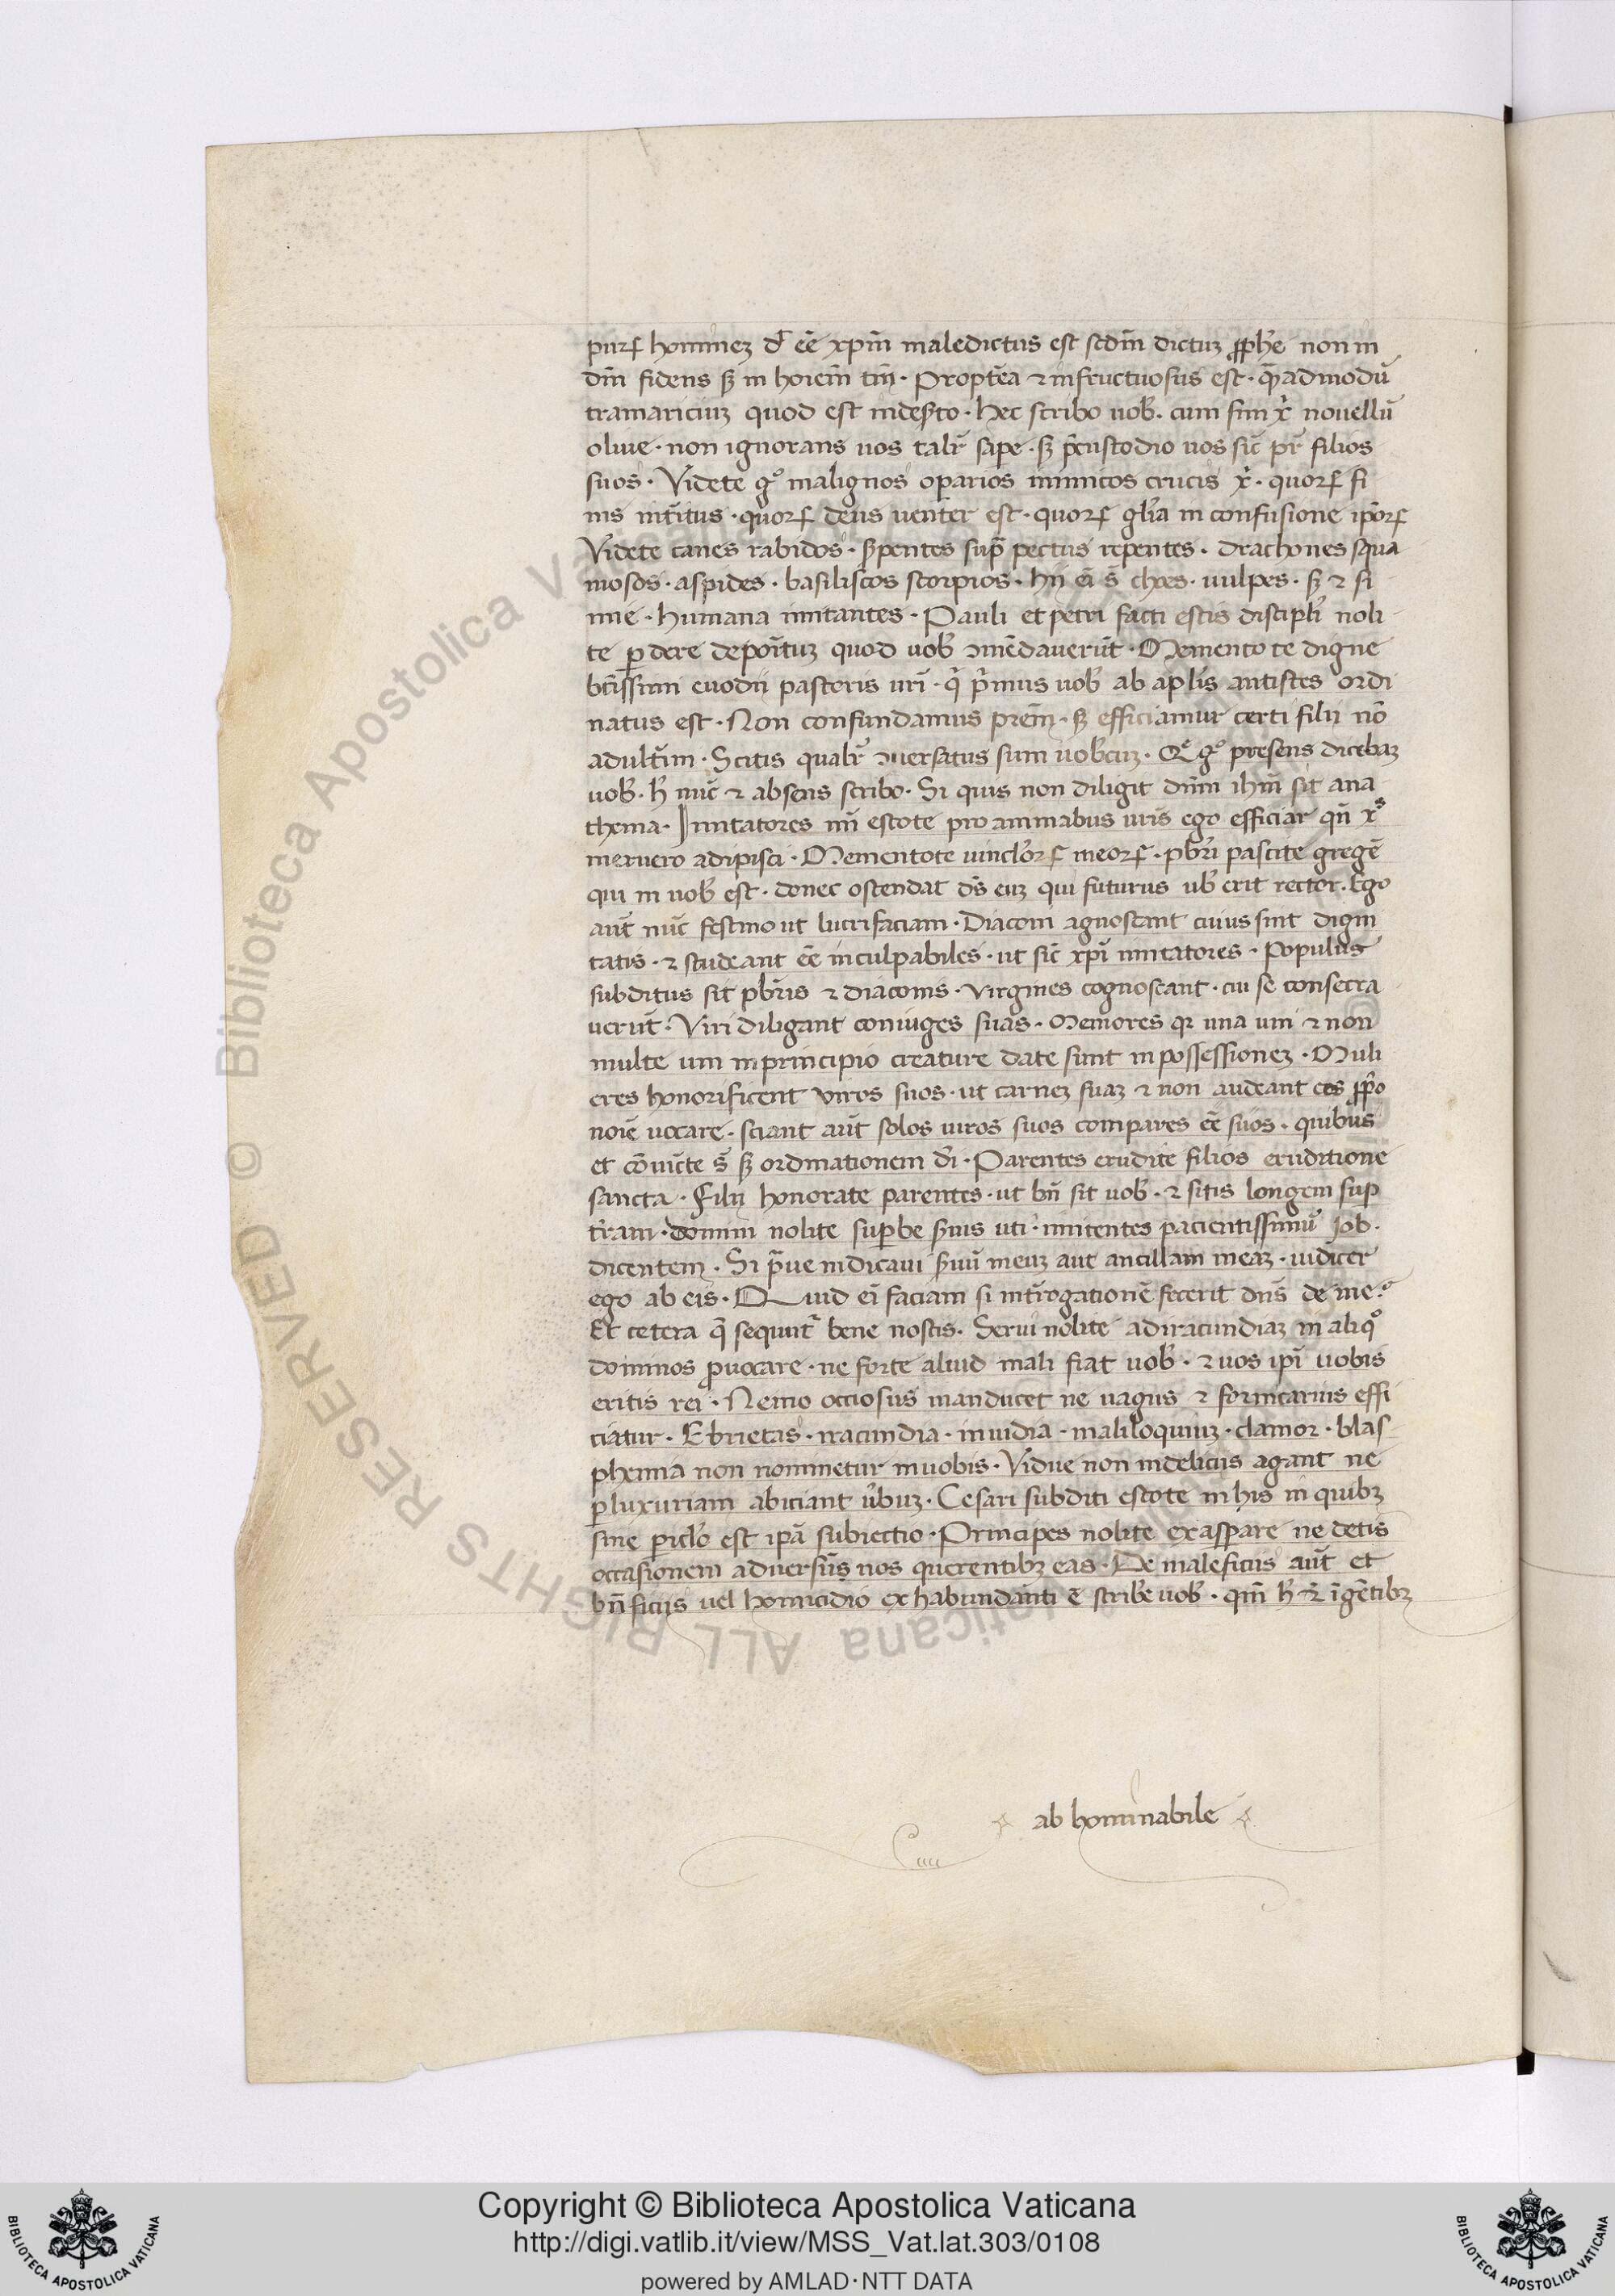 purꝝ homineꝫ dt̄ eē xp̄m maledictus est scdm̄ dictuꝫ ꝓphē non in
dn̄m fidens sꝫ in hoīem tm̄ · Propt̄ea ⁊ infructuosus est · qͣadmodū
tramariciuꝫ quod est in desꝑto · hec scribo uob̄ · cum sim x̄ nouellū
oliue · non ignorans uos talr̄ sape · sꝫ p̄custodio uos sic̄ pr̄ filios
suos · Videte gͦ malignos oꝑarios inimicos crucis x̄ · quorꝝ fi
nis int̄itus · quorꝝ deus uenter est · quorꝝ glīa in confusione ip̄orꝝ
Videte canes rabidos · sꝑpentes supͣ pectus repentes · drachones squa
mosos · aspides · basiliscos scorpios · hii eī s̄ thoes · uulpes · sꝫ ⁊ si
mie · humana imitantes · Pauli et petri facti estis discipli noli
te ꝑdere depoītuꝫ quod uob̄ ꝯmēdauerūt · Memento te digne
bt̄issimi euodii pastoris urī · qͥ pͥmus uob̄ ab ap̄lis antistes ordi
natus est · Non confundamus prēm · sꝫ efficiamur certi filii nō
adult̄ini · Scitis qualr̄ ꝯuersatus sum uobcuꝫ · Qͤ gͦ presens dicebaꝫ
uob̄ · h̄ nūc ⁊ absens scribo · Si quis non diligit dn̄m ih̄m sit ana
thema · Imitatores mī estote pro animabus urīs ego efficiar qn̄ xͫ
meruero adipisci · Mementote uinclorꝝ meorꝝ · pbr̄i pascite gregē
qui in uob̄ est · donec ostendat ds̄ euꝫ qui futurus ub̄ erit rector · Ego
aūt nūc festino ut lucrifaciam · Diaconi agnoscant cuius sint digni
tatis · ⁊ studeant eē inculpabiles · ut sic̄ xp̄i imitatores · Populus
subditus sit pbr̄is ⁊ diaconis · Virgines cognoscant · cui se consecra
uerūt · Viri diligant coniuges suas · Memores qꝛ una uni ⁊ non
multe uni in principio creature date sunt in possessioneꝫ · Muli
eres honorificent viros suos · ut carneꝫ suaꝫ ⁊ non audeant eos ꝓpͥo
noīe uocare · sciant aūt solos uiros suos compares eē suos · quibus
et cōuīcte s̄ sꝫ ordinationem dī · Parentes erudite filios eruditione
sancta · Filii honorate parentes · ut bn̄ sit uob̄ · ⁊ sitis longeui suꝑ
tr̄am · domini nolite suꝑbe s̄uis uti · imitentes pacientissimū Job ·
dicentem · Si pͣue iudicaui s̄uū meuꝫ aut ancillam meaꝫ · iudicer
ego ab eis · Quid eī faciam si int̄rogationē fecerit dn̄s de me ·ͦ
Et cetera qͤ sequntᷣ bene nostis · Serui nolite ad iracundiaꝫ in aliqͦ
dominos ꝓuocare · ne forte aliud mali fiat uob̄ · ⁊ uos ip̄i uobis
eritis rei · Nemo occiosus manducet ne uagus ⁊ fornicarius effi
ciatur · Ebrietas · iracundia · inuidia · maliloquiuꝫ · clamor · blas
phemia non nominetur in uobis · Vidue non in deliciis agant ne
ꝑ luxuriam abiciant ūbuꝫ · Cesari subditi estote in his in quibꝫ
sine piclo est ipā subiectio · Principes nolite exasꝑare ne detis
occasionem aduersūs nos querentibꝫ eas · De maleficiis aūt et
bn̄ficiis uel homicidio ex habundanti ē scribe uob̄ · qm̄ h̄ ⁊ ī gētibꝫ
ab hominabile
© Biblioteca Apostolica Vaticana ALL RIGHTS RESERVED
Copyright © Biblioteca Apostolica Vaticana
http://digi.vatlib.it/view/MSS_Vat.lat.303/0108
powered by AMLAD·NTT DATA
BIBLIOTECA APOSTOLICA VATICANA
BIBLIOTECA APOSTOLICA VATICANA